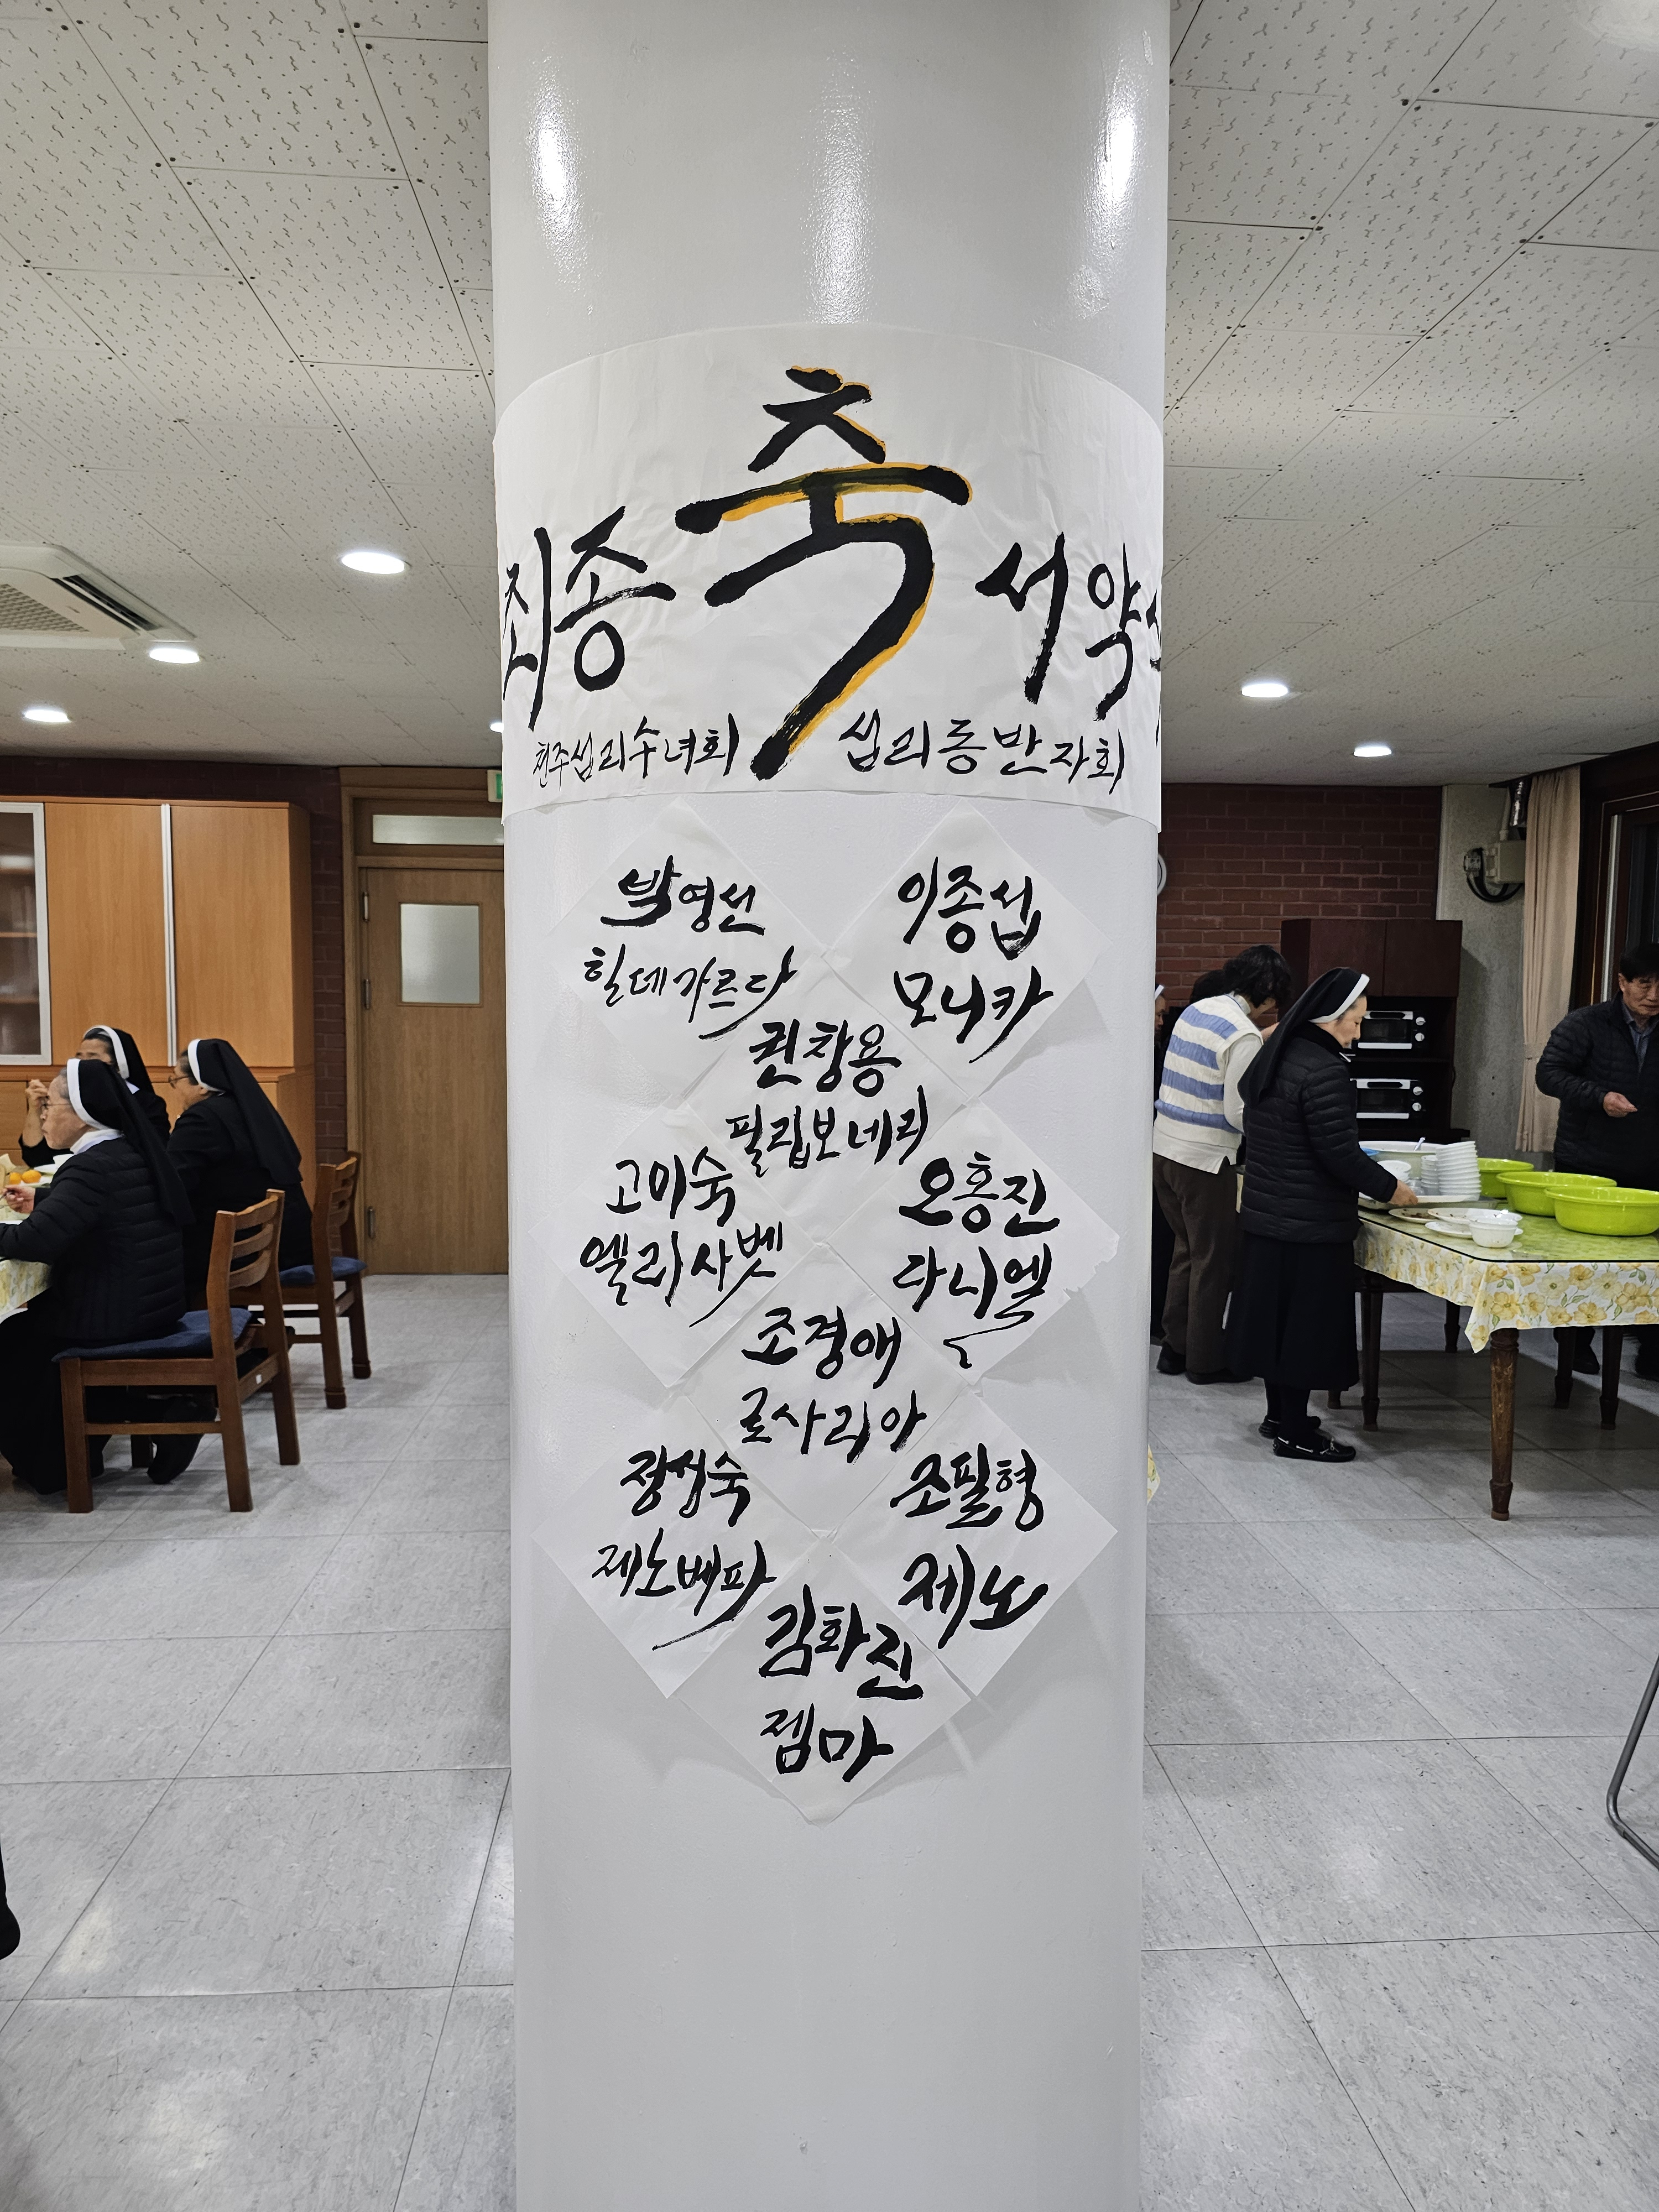 축
최종 서약식
천주섭리수녀회 섭리동반자회
박영선
힐데가르다
이종섭
모니카
권창용
필립보네리
고미숙
엘리사벳
오홍진
다니엘
조경애
로사리아
정섭숙
제노베파
조필형
제노
김화진
젬마